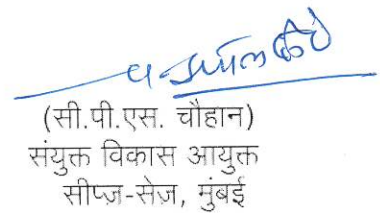 (सी.पी.एस. चौहान)
संयुक्त विकास आयुक्त
सीप्ज़-सेज़, मुंबई